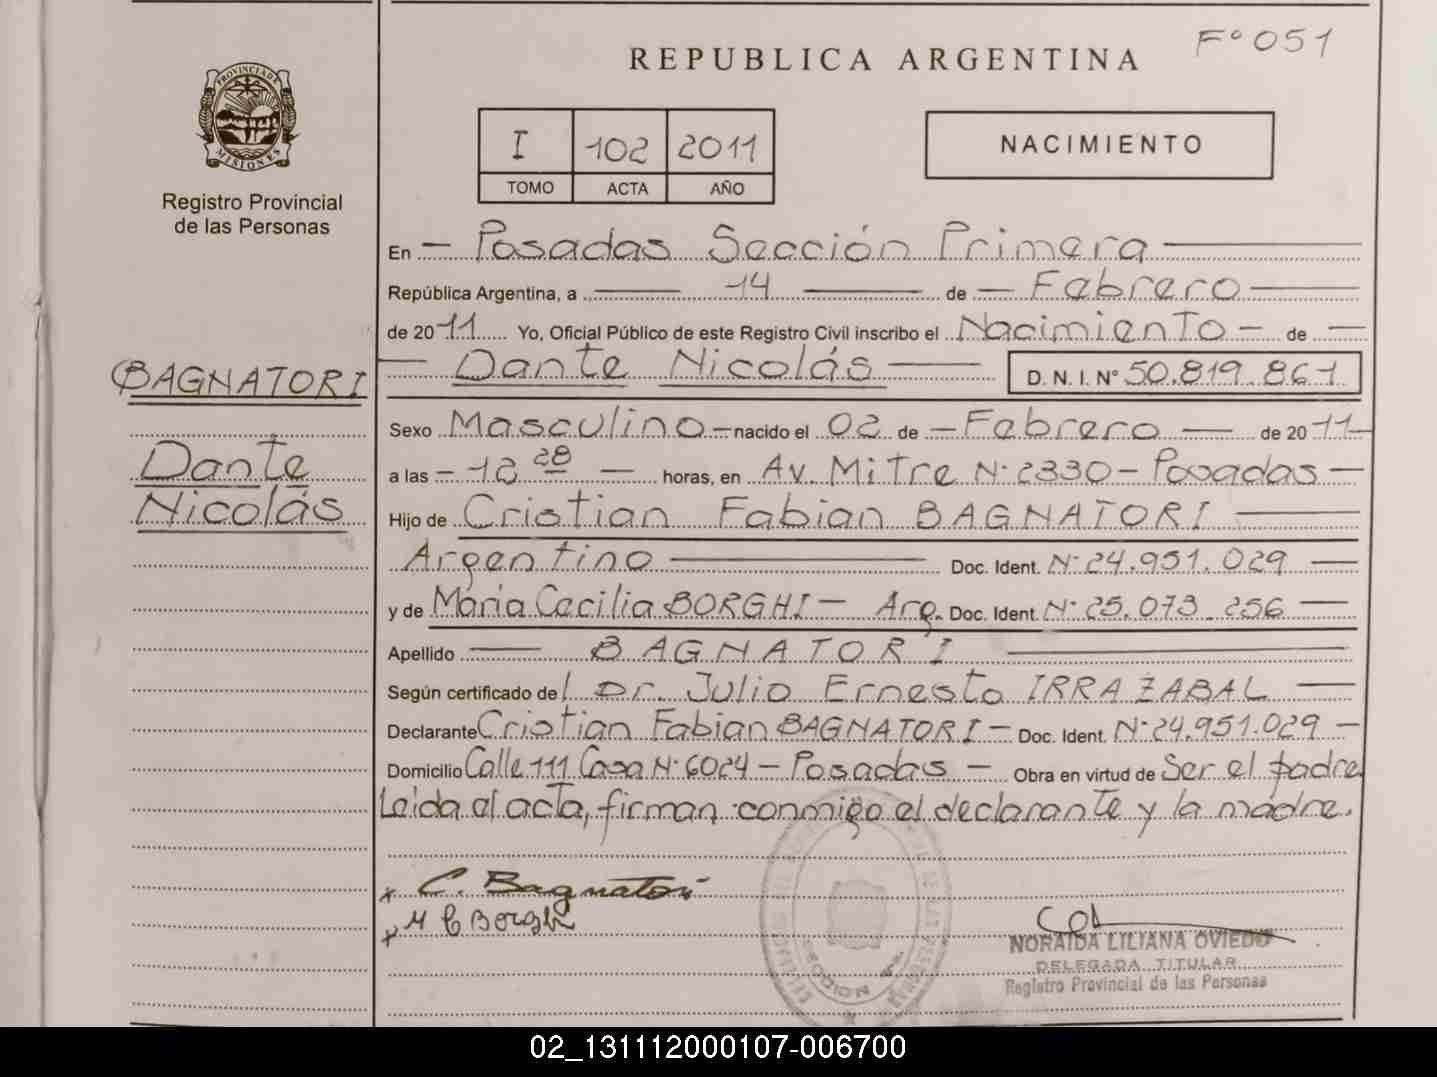 F° 051
REPUBLICA ARGENTINA
PROVINCIA DE MISIONES
Registro Provincial
de las Personas
I 102 2011
TOMO ACTA AÑO
NACIMIENTO
En Posadas Sección Primera
República Argentina, a 14 de Febrero
de 2011 Yo, Oficial Público de este Registro Civil inscribo el Nacimiento de
Dante Nicolás D. N. I. N° 50.819.861
BAGNATORI
Dante
Nicolás
Sexo Masculino nacido el 02 de Febrero de 2011
a las 12 28 horas, en Av. Mitre N° 2330 - Posadas
Hijo de Cristian Fabian BAGNATORI
Argentino Doc. Ident. N° 24.951.029
y de María Cecilia BORGHI - Arg. Doc. Ident. N° 25.073.256
Apellido BAGNATORI
Según certificado del Dr. Julio Ernesto IRRAZABAL
Declarante Cristian Fabian BAGNATORI - Doc. Ident. N° 24.951.029 -
Domicilio Calle 111 Casa N° 6024 - Posadas - Obra en virtud de Ser el padre
Leida el acta, firman conmigo el declarante y la madre.
x C. Bagnatori
x M C Borghi
NORAIDA LILIANA OVIEDO
DELEGADA TITULAR
Registro Provincial de las Personas
02_131112000107-006700